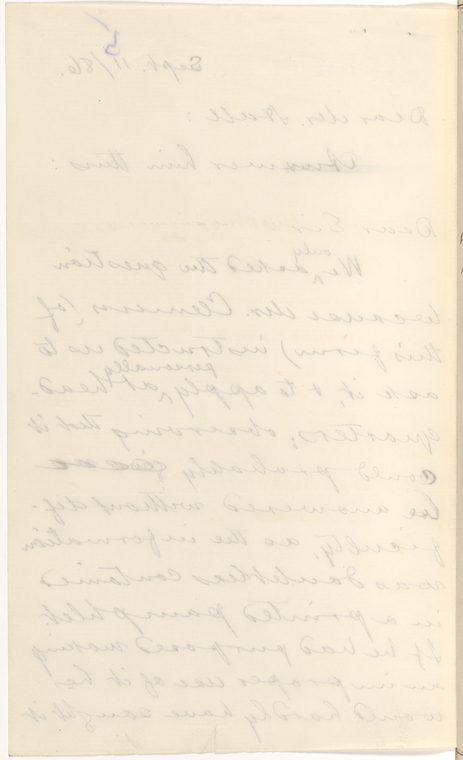 5
Sept. 11/86.
Dear Mr. Hall:
Answer him thus:
Dear Sir
We only asked the question
because Mr. Clemens (of
this firm) instructed us to
ask it, & to apply personally at head-
quarters, observing that it
could probably
be answered without dif-
ficulty, as the information
was doubtless contained
in a printed pamphlet.
If he had purposed making
an improper use of it he
would hardly have sought it